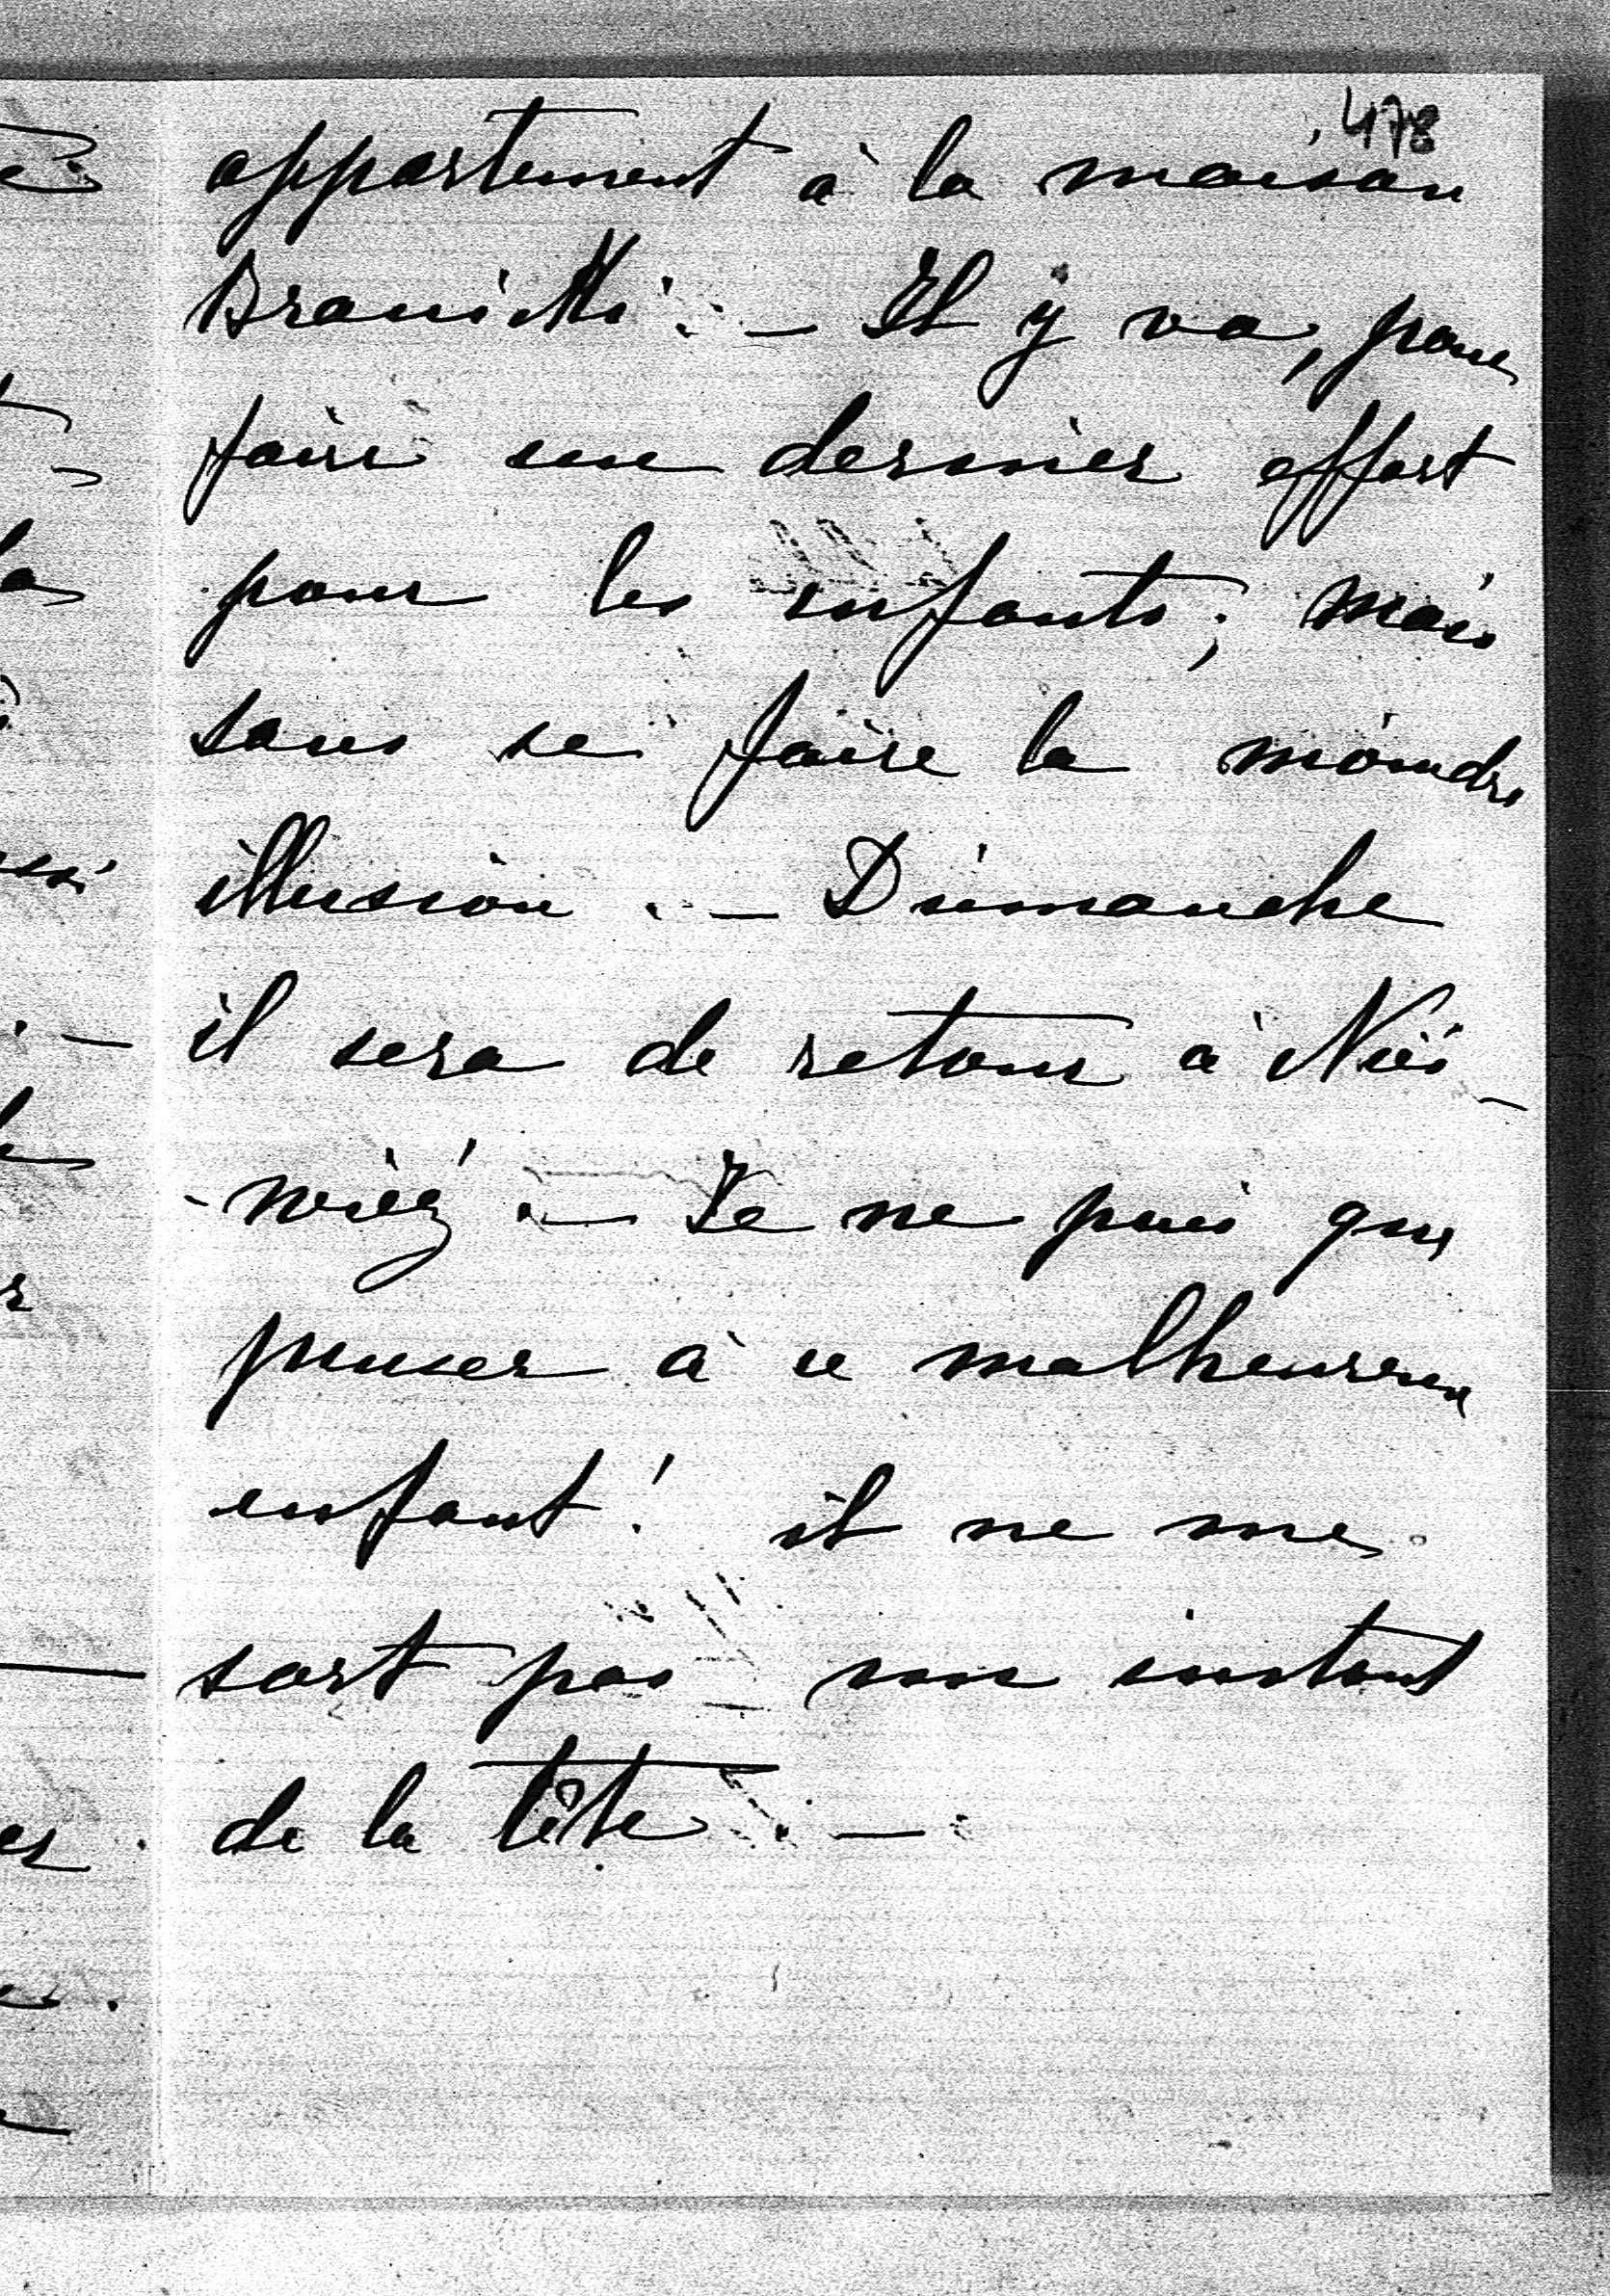 478
appartement à la maison
Branitki. — Il y va, pour
faire un dernier effort
pour les enfants; mais
sans se faire la moindre
illusion. — Dimanche
il sera de retour à Nies-
-wiéź. — Je ne puis que
penser à ce malheureux
enfant! il ne me
sort pas un instant
de la tête. —